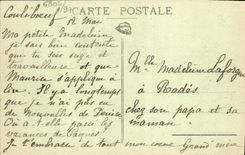 CARTE POSTALE
Mai
Ma petite Madeleine
Je suis bien contente
que tu sois sage et
travailleuse et que
Maurice s'applique à
lire. Il y a longtemps
que je n'ai pas eu
de Nouvelles de Denise
Où a t'elle passé les
vacances de Pâques
Je t'embrasse de tout
mon coeur Grand'mère
Mlle Madeleine Laforgue
à Rodès
chez son papa et sa
maman